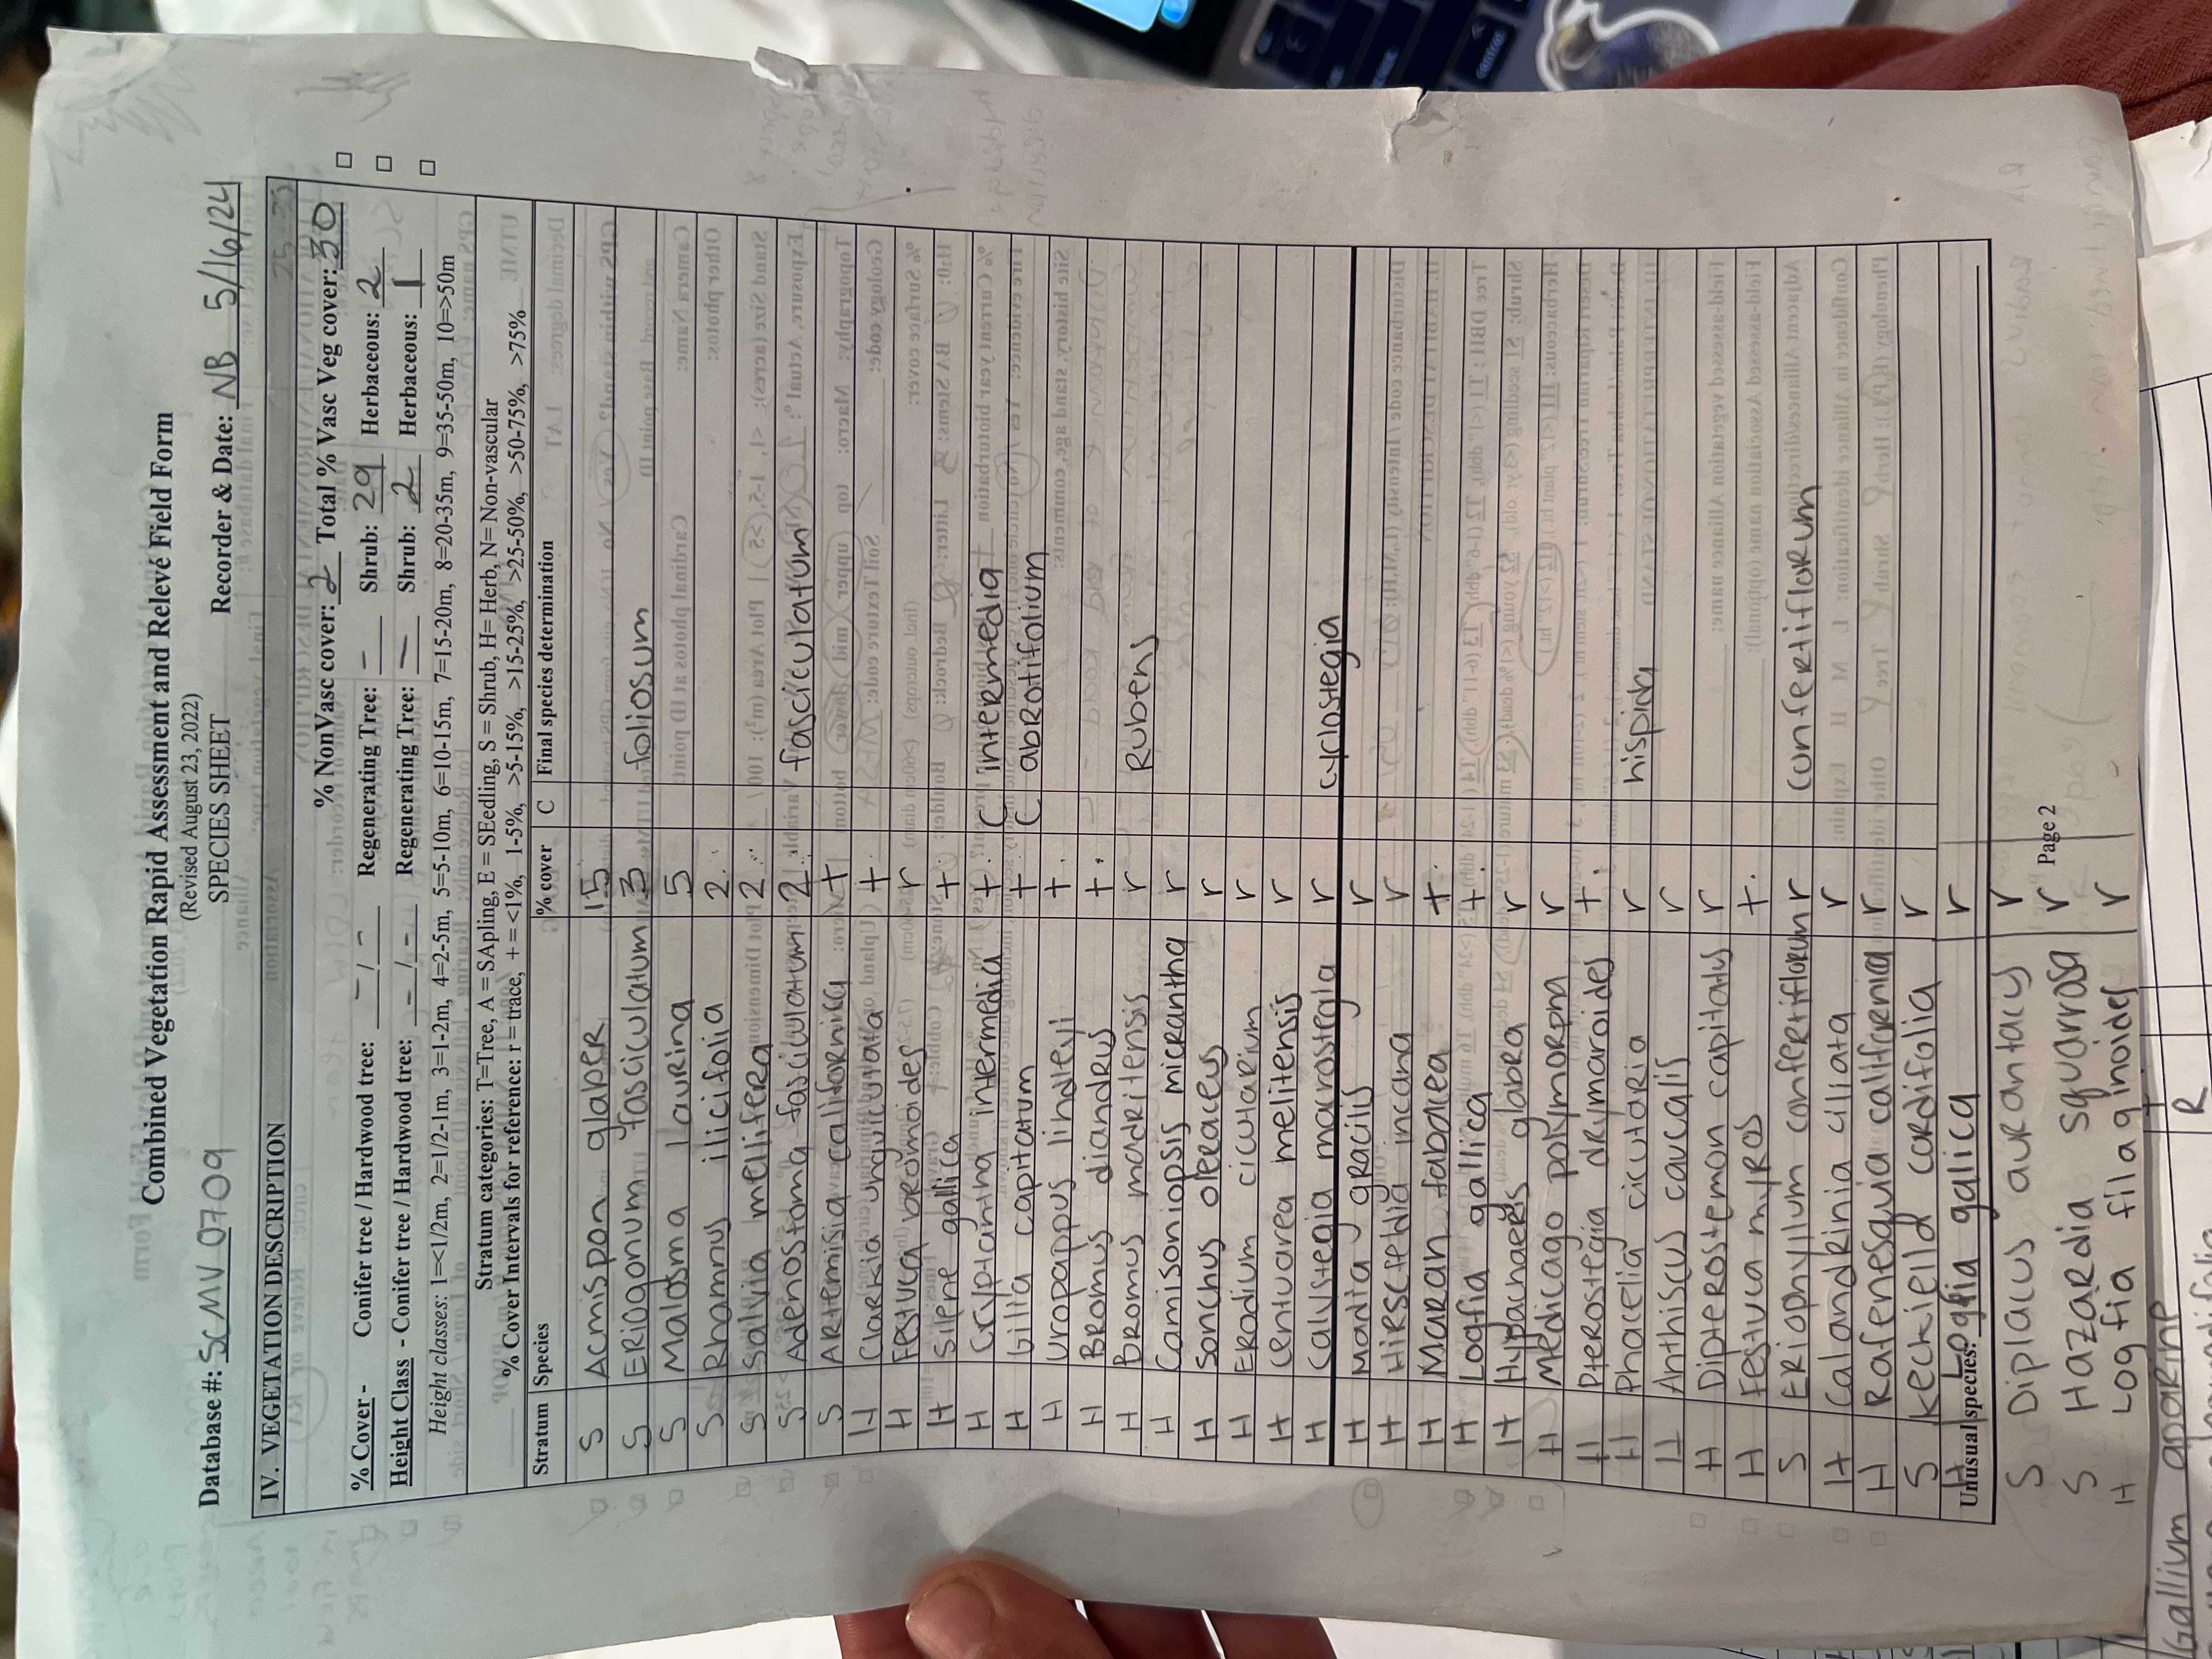 Combined Vegetation Rapid Assessment and Relevé Field Form
(Revised August 23, 2022)
SPECIES SHEET
Database #: SCMV0709 Recorder & Date: NB 5/16/24
IV. VEGETATION DESCRIPTION
% NonVasc cover: 2 Total % Vasc Veg cover: 30
% Cover - Conifer tree / Hardwood tree: - / - Regenerating Tree: - Shrub: 29 Herbaceous: 2
Height Class - Conifer tree / Hardwood tree: - / - Regenerating Tree: - Shrub: 2 Herbaceous: 1
Height classes: 1=<1/2m, 2=1/2-1m, 3=1-2m, 4=2-5m, 5=5-10m, 6=10-15m, 7=15-20m, 8=20-35m, 9=35-50m, 10=>50m
Stratum categories: T=Tree, A = SApling, E = SEedling, S = Shrub, H= Herb, N= Non-vascular
% Cover Intervals for reference: r = trace, + = <1%, 1-5%, >5-15%, >15-25%, >25-50%, >50-75%, >75%
Stratum Species % cover C Final species determination
S Acmispon glaber 15
S Eriogonum fasciculatum 3 foliosum
S Malosma laurina 5
S Rhamnus ilicifolia 2
S Salvia mellifera 2
S Adenostoma fasciculatum 2 fasciculatum
S Artemisia californica +
H Clarkia unguiculata +
H Festuca bromoides r
H Silene gallica +
H Cryptantha intermedia + C intermedia
H Gilia capitatum + C abrotifolium
H Uropappus lindleyi +
H Bromus diandrus +
H Bromus madritensis r Rubens
H Camisoniopsis micrantha r
H Sonchus oleraceus r
H Erodium cicutarium r
H Centuarea melitensis r
H Calystegia macrostegia r cyclostegia
H Madia gracilis r
H Hirscfeldia incana r
H Marah fabacea +
H Logfia gallica +
H Hypochaeris glabra r
H Medicago polymorpha r
H Pterostegia drymaroides +
H Phacelia cicutaria r hispida
H Anthiscus caucalis r
H Dipterostemon capitatus r
H Festuca myros +
S Eriophyllum confertiflorum r confertiflorum
H Calandrinia ciliata r
H Rafenesquia californica r
S Keckiella cordifolia r
H Logfia galica r
Unusual species:
S Diplacus aurantacus r
S Hazardia squarrosa r Page 2
H Logfia filaginoides r
Gallium aparine R